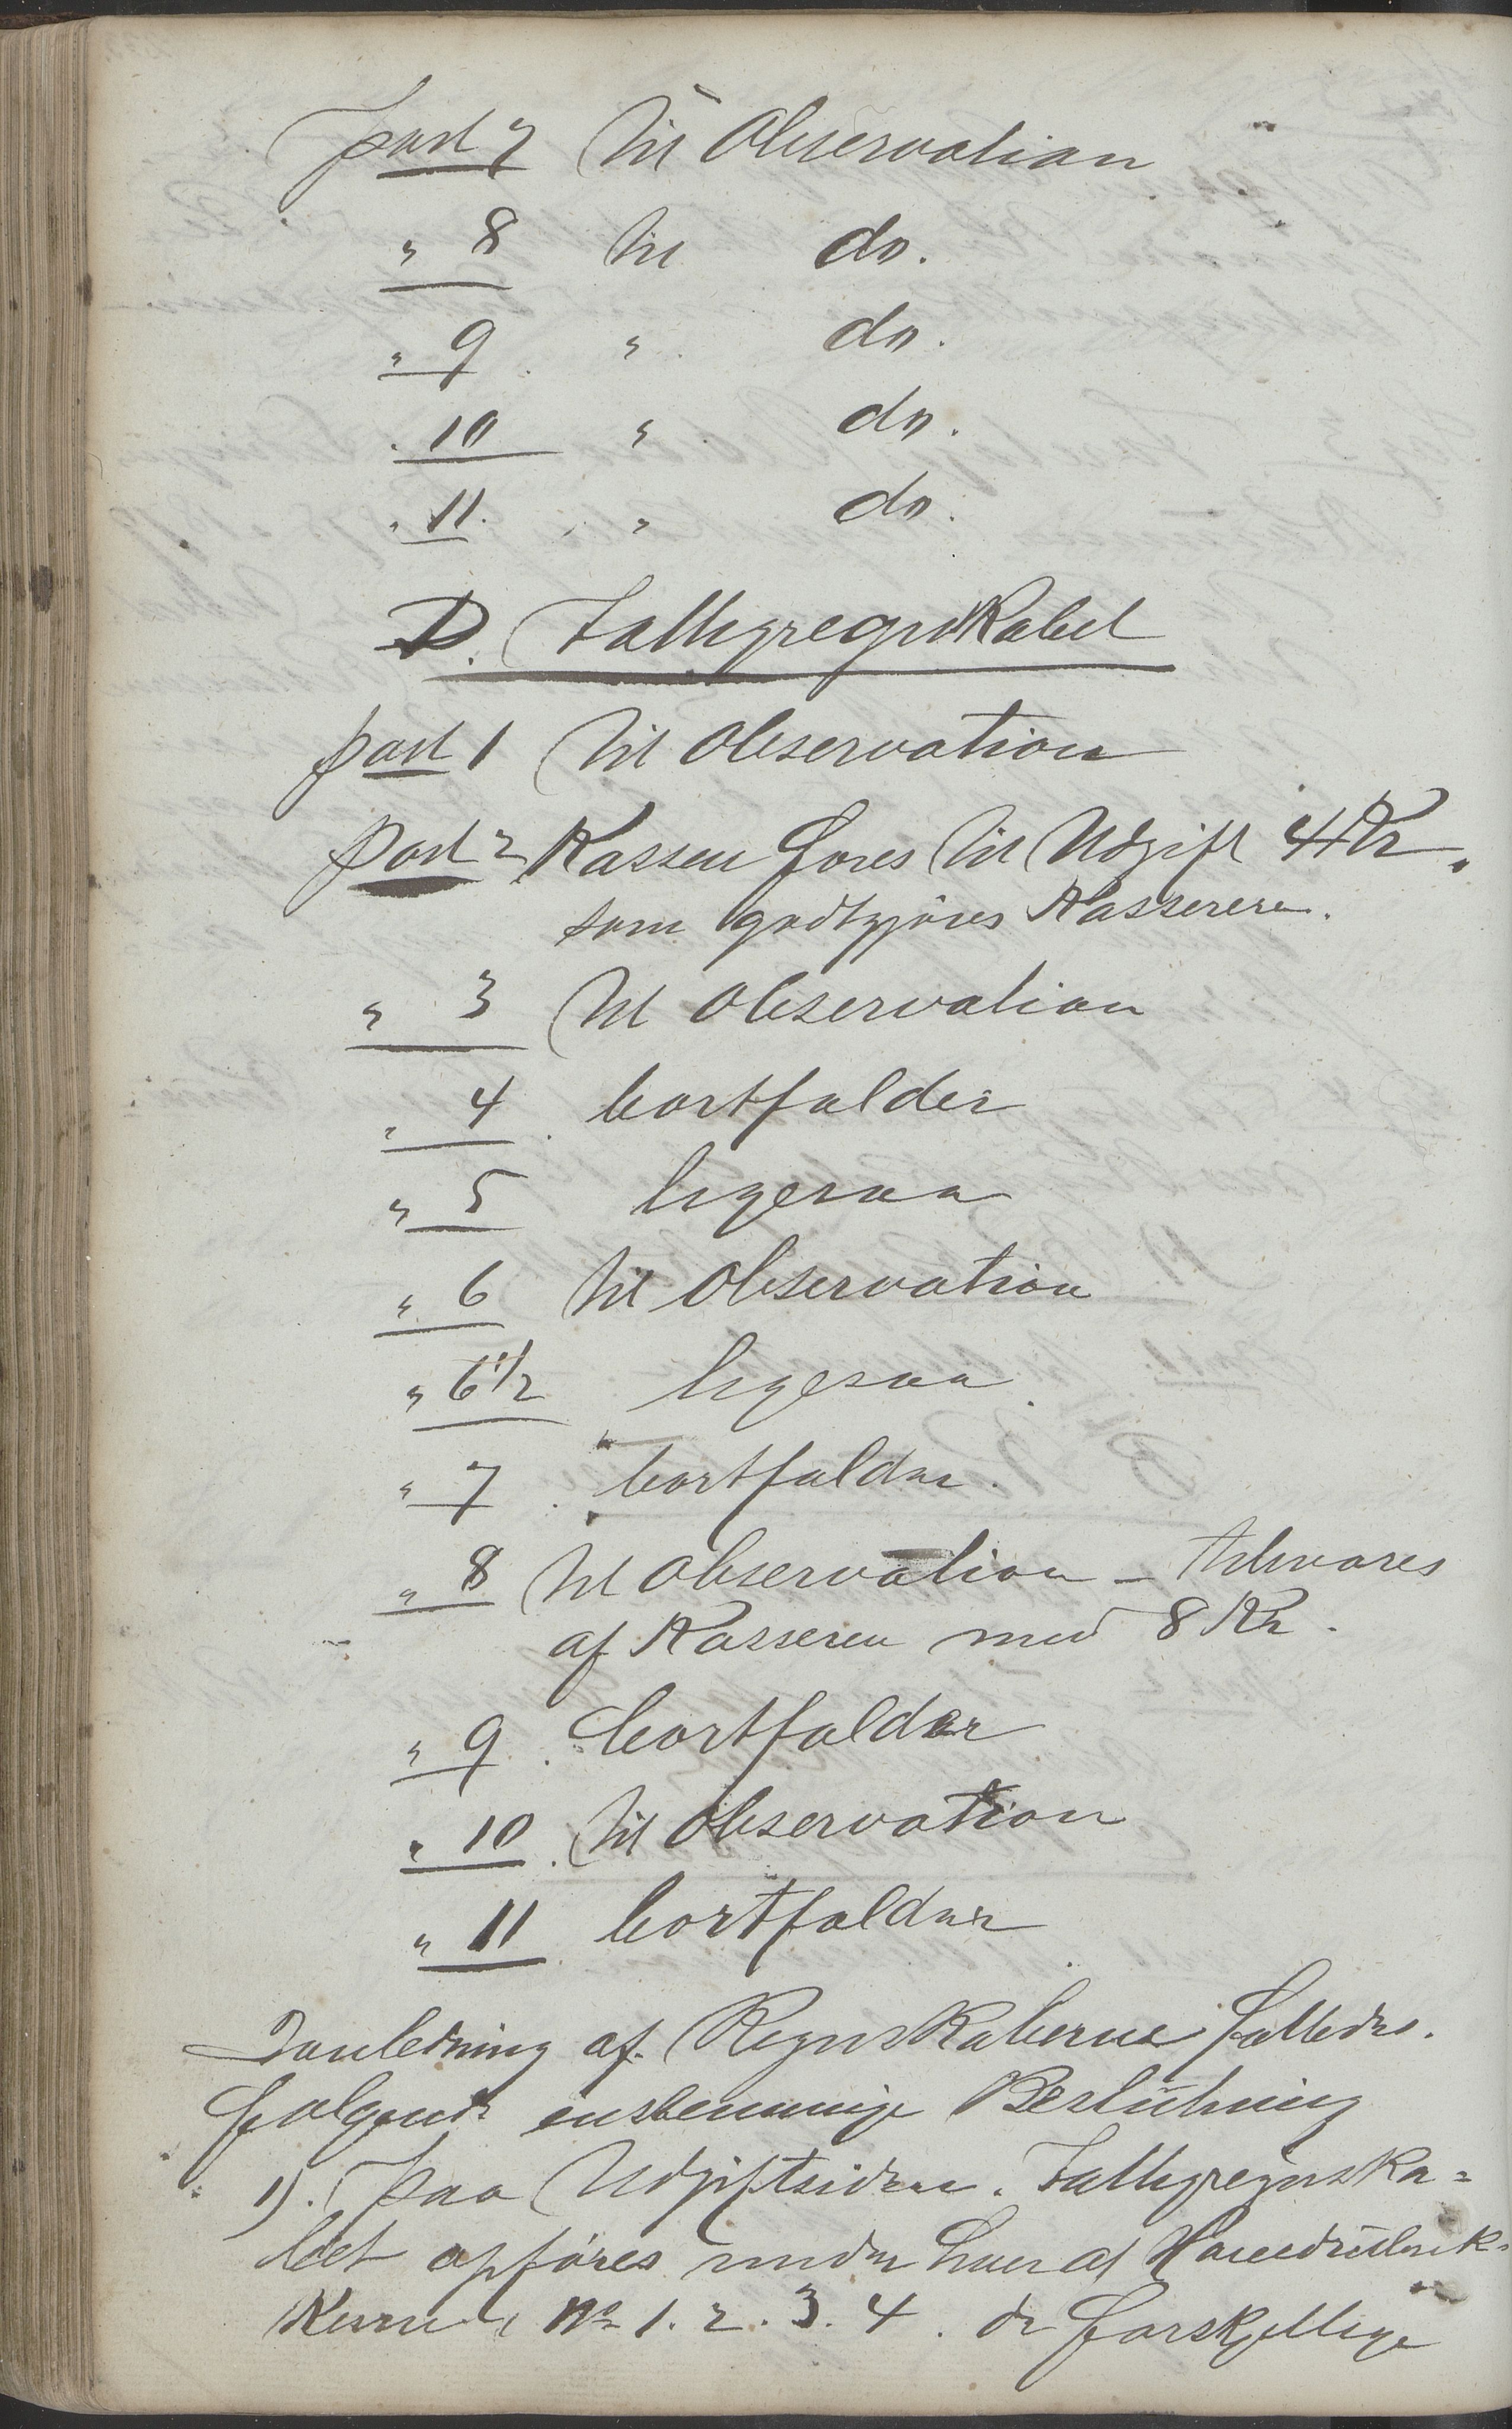 post 7 til Observation
" 8 til do.
" 9 " do.
" 10 " do.
" 11. " do.
D. Fattigregnskabet
post 1 til Observation
post 2 Kassen føres til Udgift 4 Kr.
som godtgjøres Kassereren.
" 3 til Observation
" 4 bortfalder
" 5 ligesaa
" 6 til Observation
" 6 1/2 ligesaa
" 7 bortfalder.
" 8 til Observation – tilsvares
af Kassereren med 8 Kr.
" 9 bortfalder
" 10 til Observation
" 11 bortfalder
I anledning af Regnskaberne fattedes
følgende enstemmige Beslutning
1). paa Udgiftsiden i Fattigregnska=
bet opføres under hver af Hovedrubrik-
kerne No 1. 2. 3. 4. de forskjellige